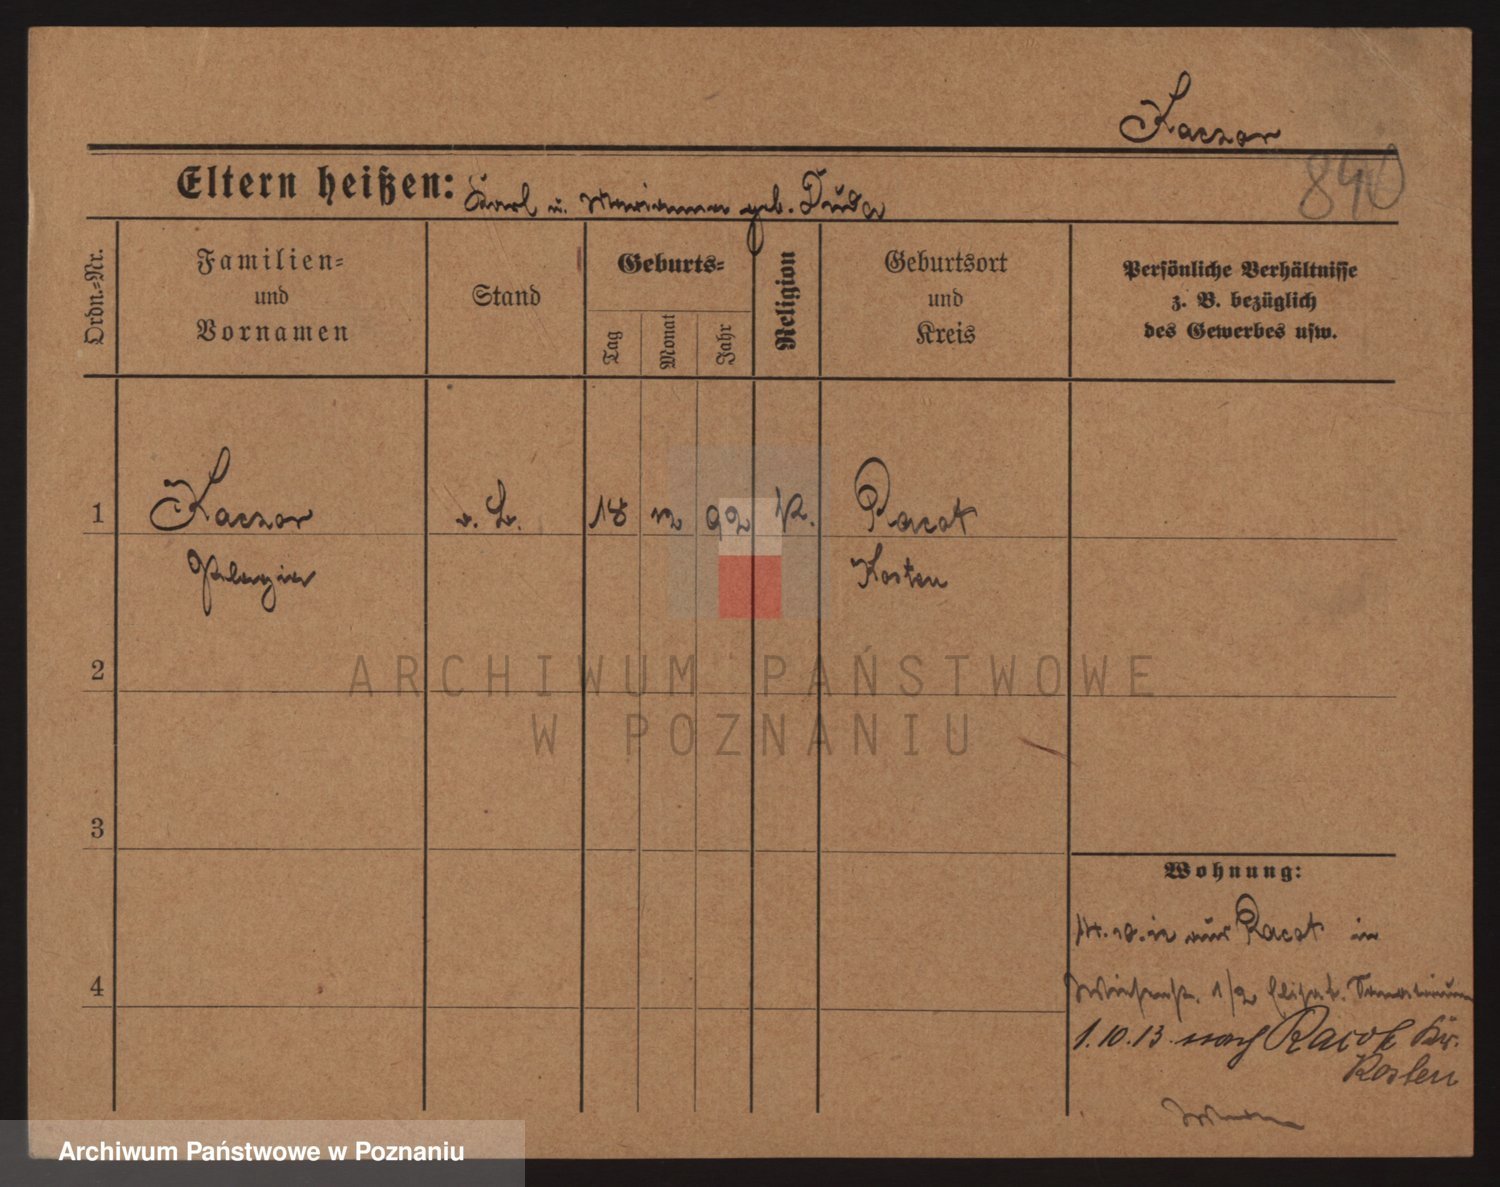 Kaczor
840
Eltern heißen: Karl u. Marianna geb. Duda
Ordn.-Nr.
Familien-
und
Vornamen
Stand
Geburts-
Tag
Monat
Jahr
Religion
Geburtsort
und
Kreis
Persönliche Verhältnisse
z. B. bezüglich
des Gewerbes usw.
1 Kaczor 18 12 92 k. Racot
Pelagia Kosten
2
ARCHIWUM PAŃSTWOWE
W POZNANIU
3
Wohnung:
14.10.12 aus Racot in
1/2 Elisab. Sanatorium
4
1.10.13 nach Racot Kr.
Kosten
Archiwum Państwowe w Poznaniu